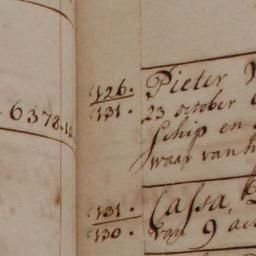 6378.12
126.
131.
Pieter
23 october
schip en
waar van
131.
130.
Cassa,
van 9